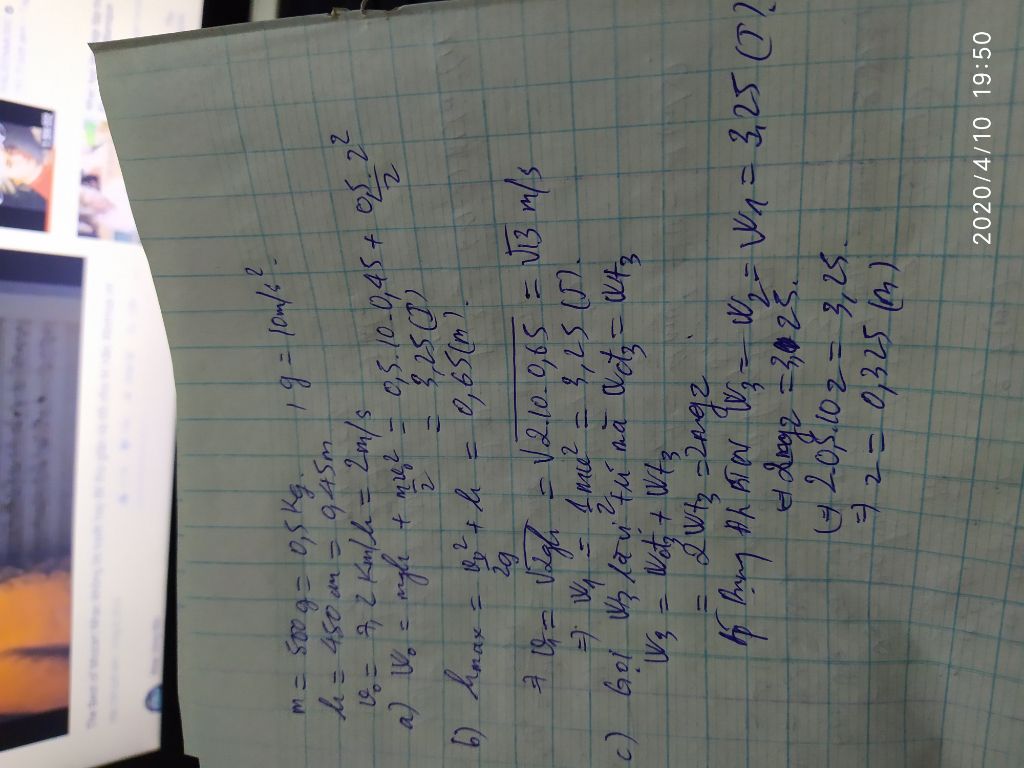 m = 500g = 0,5 Kg. , g = 10m/s².
h = 450 cm = 0,45m
v₀ = 7,2 Km/h = 2m/s
a) W₀ = mgh + mv₀²/2 = 0,5.10.0,45 + 0,5/2 2²
= 3,25 (J)
b) hmax = v₀²/2g + h = 0,65(m).
=> v₁ = √2gh = √2.10.0,65 = √13 m/s
=> W₁ = 1/2 mv² = 3,25 (J).
c) Gọi W₃ tại vị trí mà Wđ₃ = Wt₃
W₃ = Wđ₃ + Wt₃
= 2Wt₃ = 2mgz
ĐLBTCN W₃ = W₂ = W₁ = 3,25 (J).
2mgz = 3,25.
(=) 2.0,5.10z = 3,25.
=> z = 0,325 (m)
2020/4/10 19:50